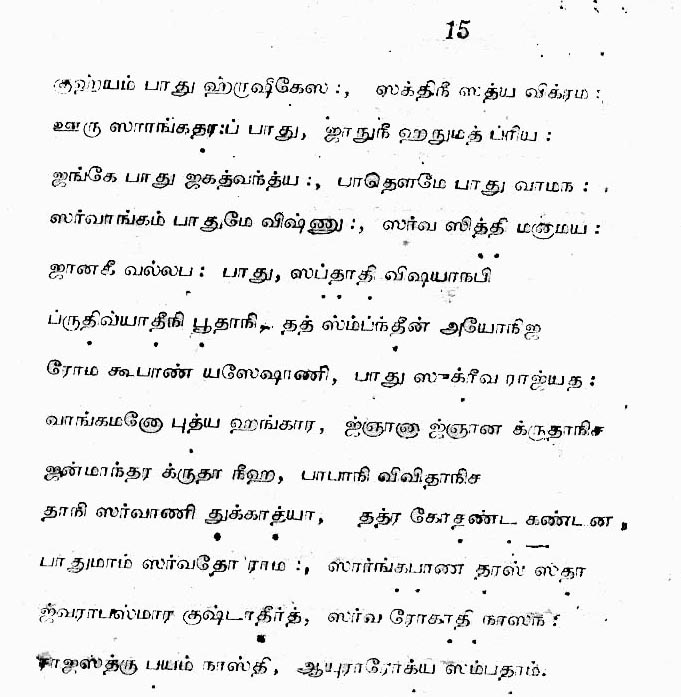 15
குஹ்யம் பாது ஹ்ருஷிகேஸ :, ஸக்திநீ ஸத்ய விக்ரம :
ஊரு ஸாரங்கதர:ப் பாது, ஜாநுநீ ஹநுமத் ப்ரிய :
ஜங்கே பாது ஜகத்வந்த்ய :, பாதௌமே பாது வாமந :
ஸர்வாங்கம் பாதுமே விஷ்ணு :, ஸர்வ ஸித்தி மநாமய :
ஜானகீ வல்லப : பாது, ஸப்தாதி விஷயாநபி
ப்ருதிவ்யாதீநி பூதாநி, தத் ஸ்ம்ப்ந்தீன் அயோநிஜ
ரோம கூபாண் யஸேஷாணி, பாது ஸுக்ரீவ ராஜ்யத :
வாங்கமனோ புத்ய ஹங்கார, ஜ்ஞானா ஜ்ஞான க்ருதாநிச
ஜன்மாந்தர க்ருதா நீஹ, பாபாநி விவிதாநிச
தாநி ஸர்வாணி துக்காத்யா, தத்ர கோதண்ட கண்டன,
பாதுமாம் ஸர்வதோ ராம :, ஸார்ங்கபாண தாஸ் ஸதா
ஜ்வராபஸ்மார குஷ்டாதீர்த், ஸர்வ ரோகாதி நாஸந :
ராஜஸத்ரு பயம் நாஸ்தி, ஆயுராரோக்ய ஸம்பதாம்.